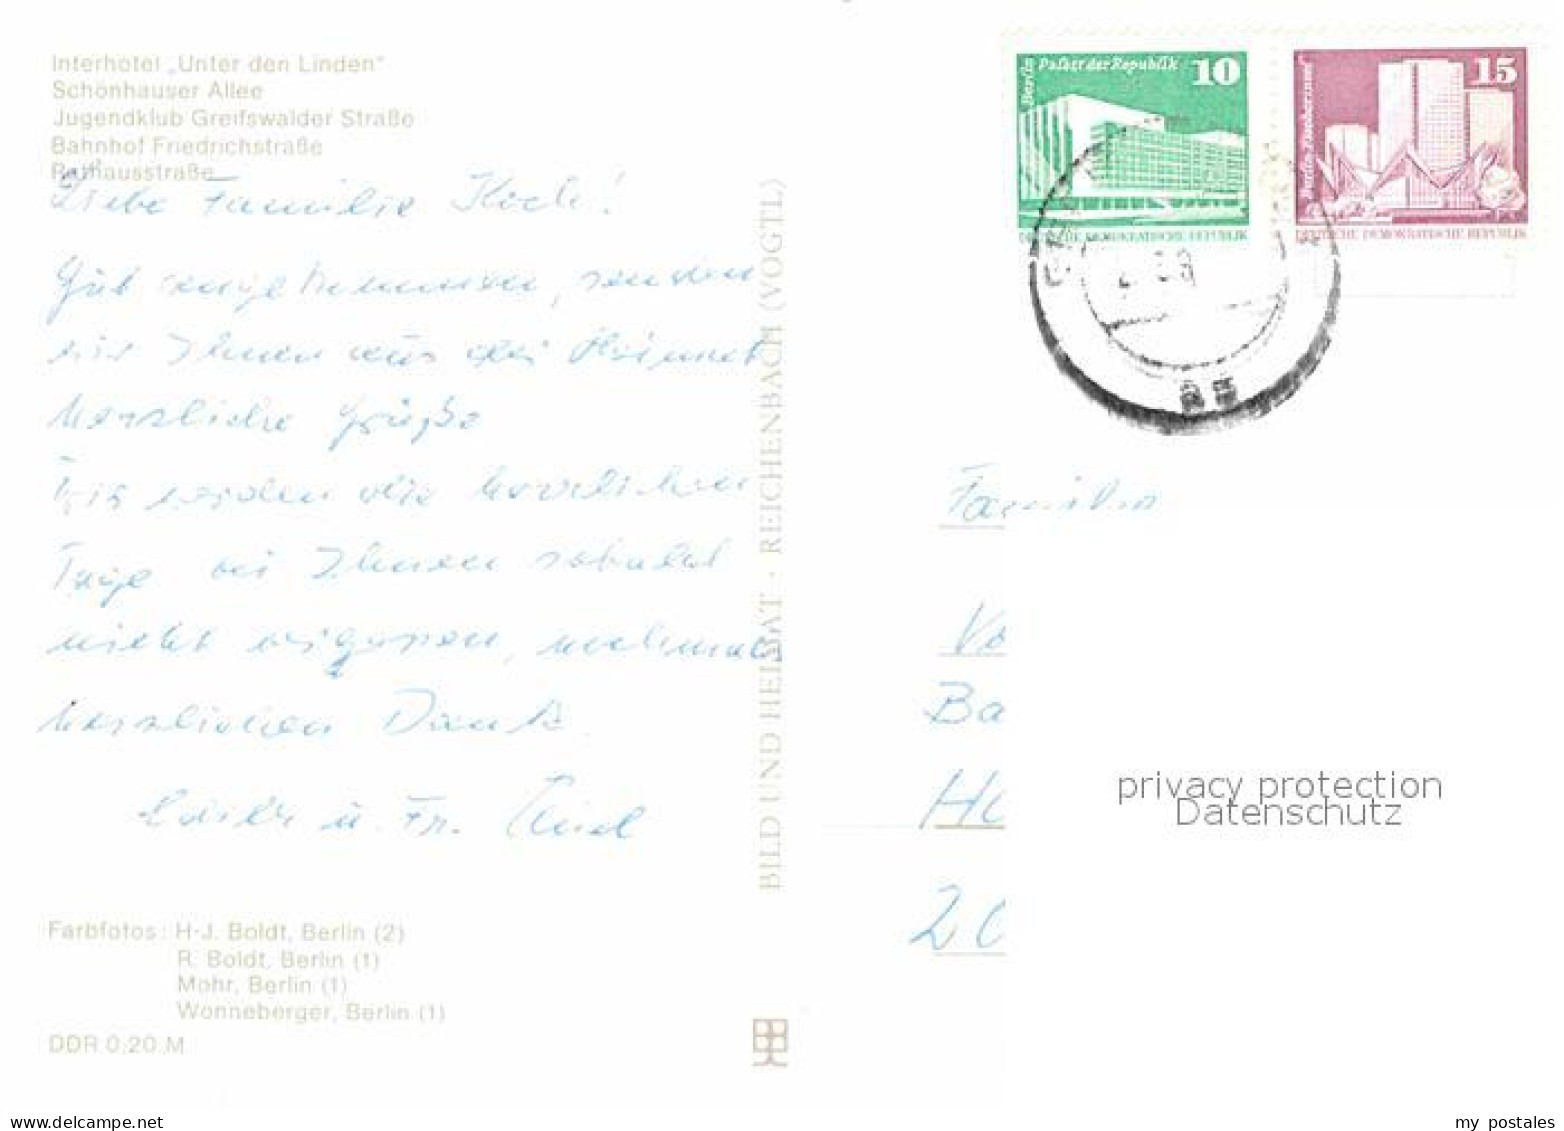 Interhotel „Unter den Linden"
Schönhauser Allee
Jugendklub Greifswalder Straße
Bahnhof Friedrichstraße
Rathausstraße
Liebe Familie Koch!
Gut angekommen, senden
wir Ihnen aus der Heimat
herzliche Grüße
Wir werden die herrlichen
Tage bei Ihnen sobald
nicht vergessen, nochmals
herzlichen Dank.
u. Fr.
Farbfotos: H-J. Boldt, Berlin (2)
R. Boldt, Berlin (1)
Mohr, Berlin (1)
Wonneberger, Berlin (1)
DDR 0,20 M
BILD UND HEIMAT · REICHENBACH (VOGTL)
Berlin Palast der Republik 10
DEUTSCHE DEMOKRATISCHE REPUBLIK
Berlin 15
DEUTSCHE DEMOKRATISCHE REPUBLIK
Familie
Vo
Ba
Ha
20
privacy protection
Datenschutz
www.delcampe.net
my postales